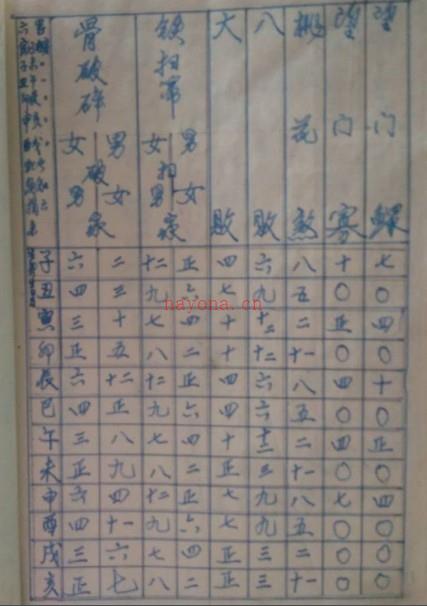 骨破碎 铁扫帚 大败 八败 桃花煞 望门寡 望门鳏
女 男 破 男 女 家 女 男 扫 男 女 家
子 六 二 十二 正 四 六 八 十 七
丑 四 三 九 六 七 九 五 〇 〇
寅 三 十 七 四 十 十二 二 正 四
卯 正 五 八 二 十 十二 十一 〇 〇
辰 六 十二 十二 正 四 六 八 四 十
巳 四 正 九 六 四 六 五 〇 〇
午 三 八 七 四 十 十二 二 四 正
未 正 九 八 二 正 三 十一 〇 〇
申 六 四 十二 正 七 九 八 七 四
酉 四 十一 九 六 七 九 五 〇 〇
戌 三 六 七 四 正 三 二 〇 〇
亥 正 七 八 二 正 三 十一 〇 〇
nayona.cn